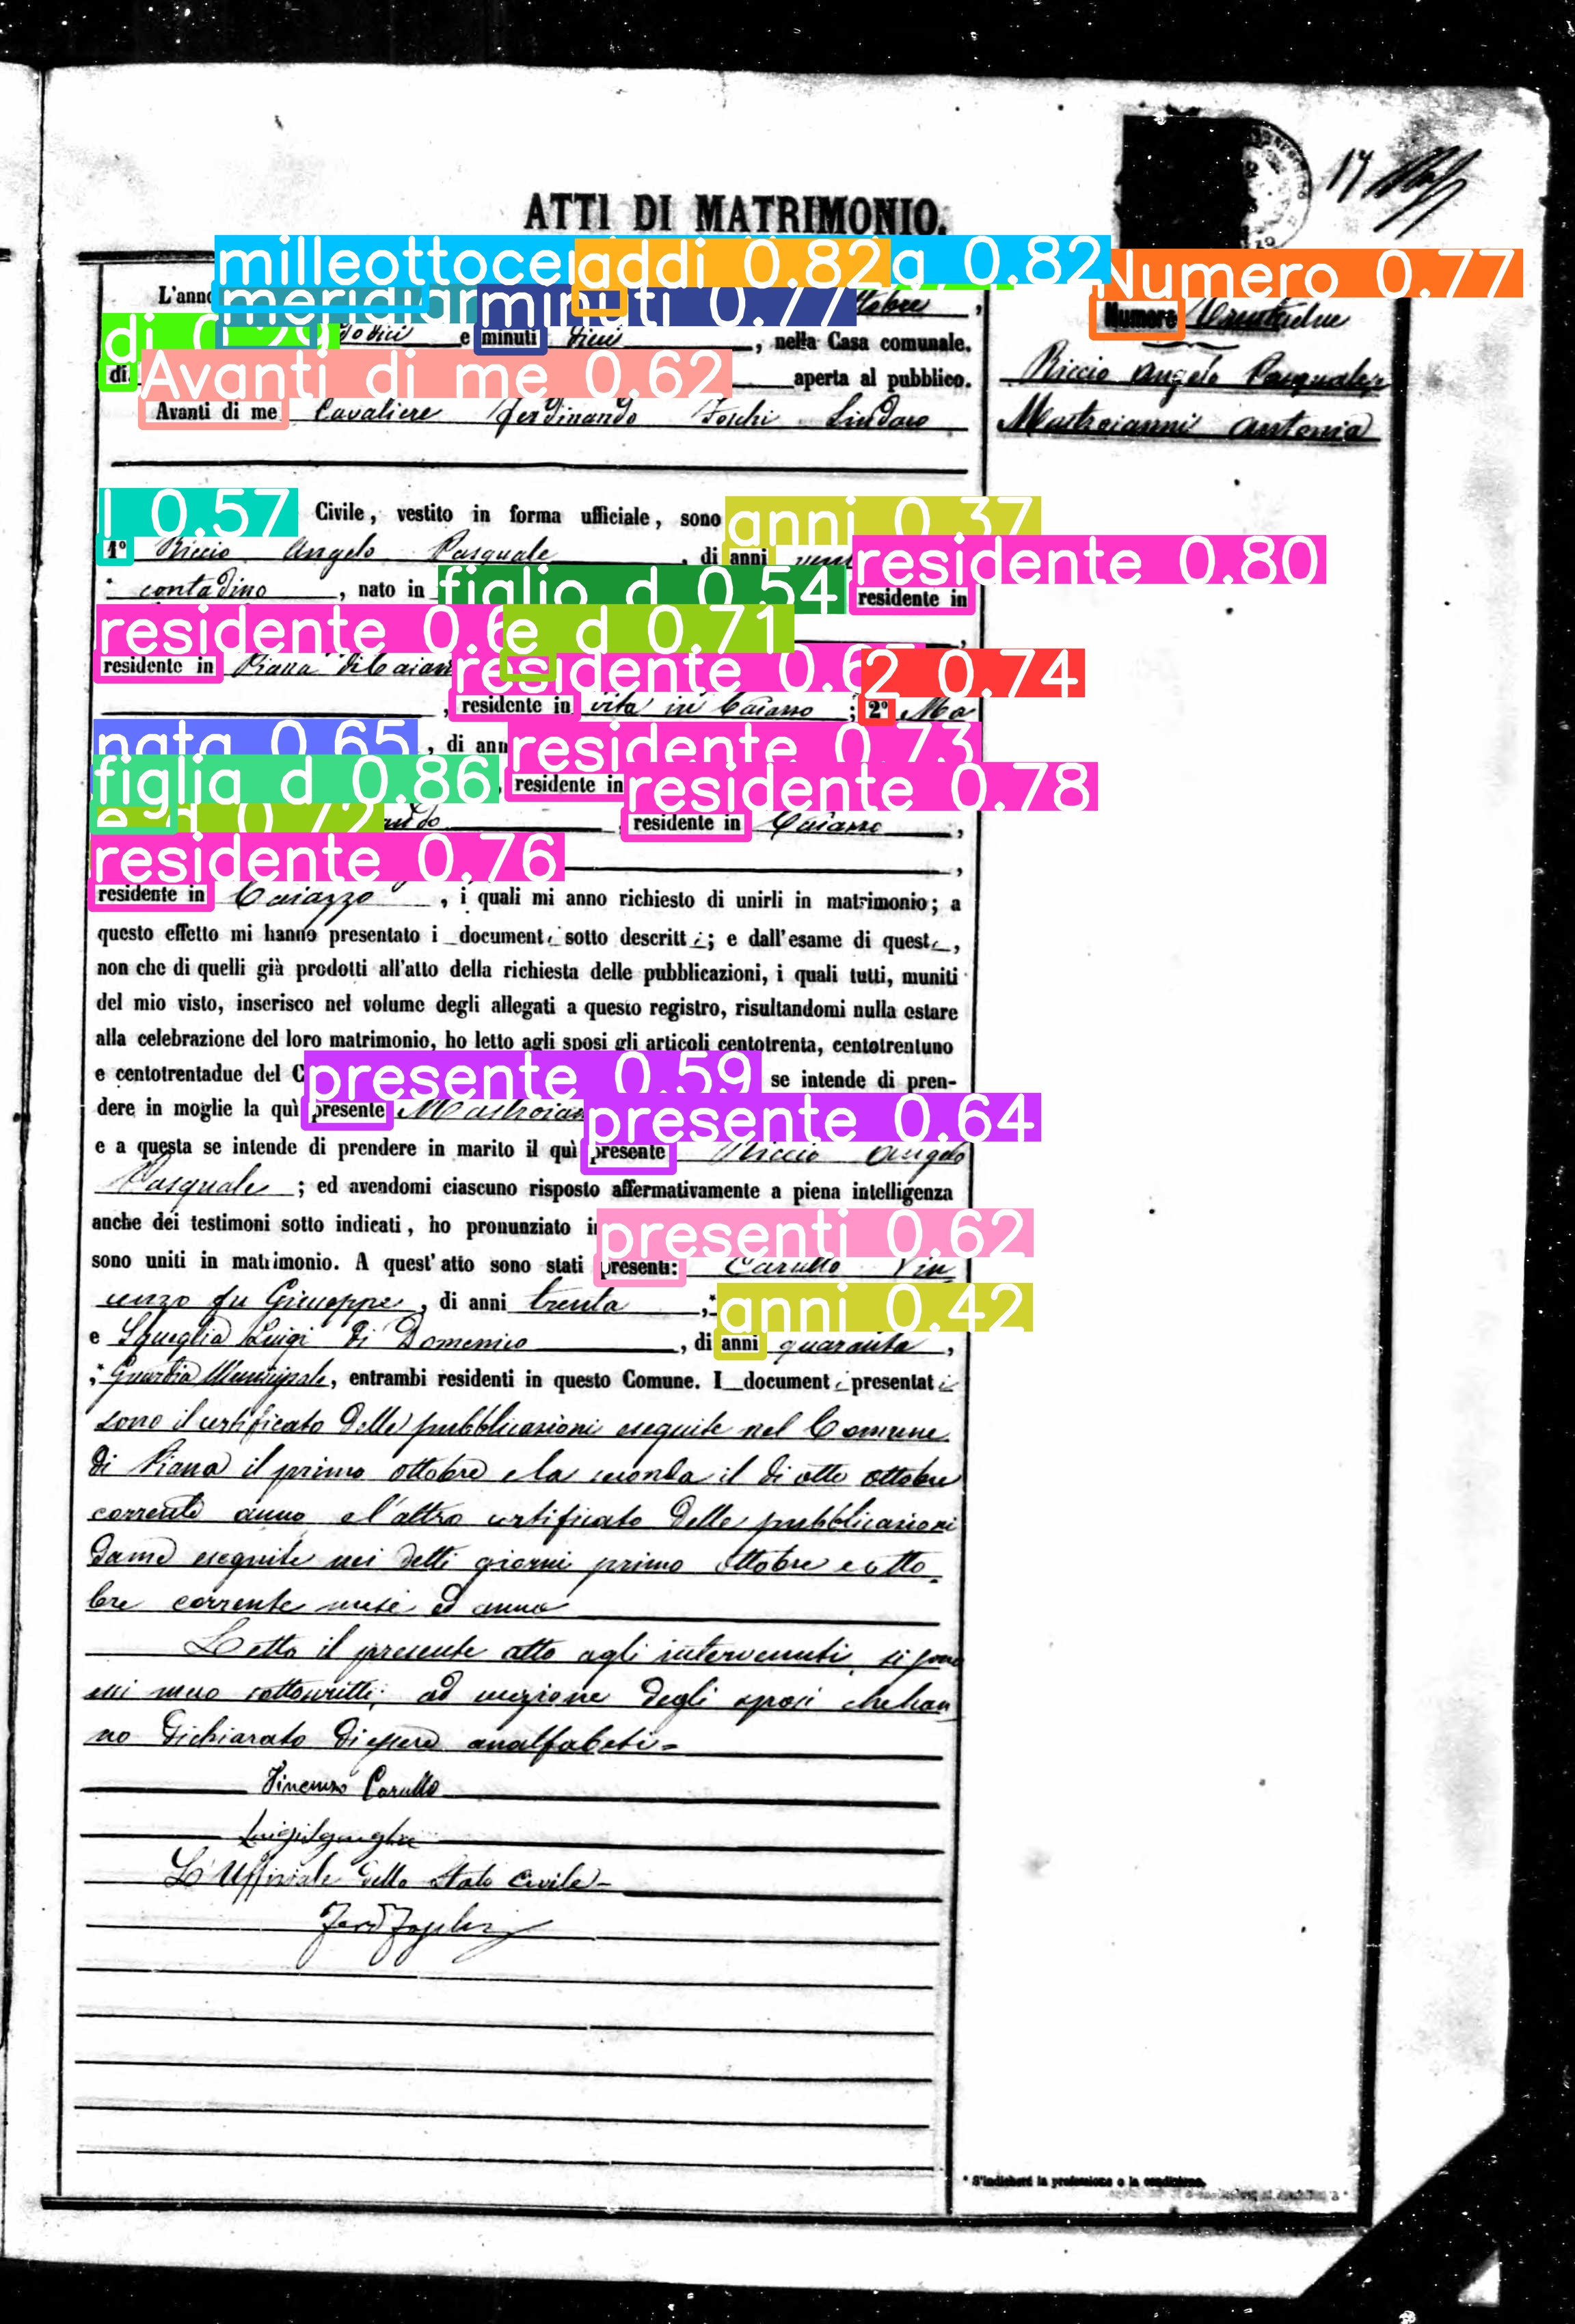 17
ATTI DI MATRIMONIO.
milleottoce addi 0.82 g 0.82
Numero 0.77
L'anno meridian minuti 0.77 ttobre,
Numero Trentadue
di 0.29 dodici e minuti dieci, nella Casa comunale.
Riccio Angelo Pasquale
di Avanti di me 0.62 aperta al pubblico.
Mastroianni Antonia
Avanti di me Cavaliere Ferdinando Foschi Sindaco
1 0.57 Civile, vestito in forma ufficiale, sono anni 0.37
1° Riccio Angelo Pasquale, di anni residente 0.80
* contadino, nato in figlio d 0.54 residente in
residente 0.6 e d 0.71
residente in Piana di Caiazzo residente 0.6 2 0.74
, residente in vita in Caiazzo; 2° Ma
nata 0.65, di ann residente 0.73
figlia d 0.86 residente in residente 0.78
e d 0.72 residente in Caiazzo,
residente 0.76
residente in Caiazzo, i quali mi anno richiesto di unirli in matrimonio; a
questo effetto mi hanno presentato i document i sotto descritt i; e dall'esame di quest i,
non che di quelli già prodotti all'atto della richiesta delle pubblicazioni, i quali tutti, muniti
del mio visto, inserisco nel volume degli allegati a questo registro, risultandomi nulla ostare
alla celebrazione del loro matrimonio, ho letto agli sposi gli articoli centotrenta, centotrentuno
e centotrentadue del C presente 0.59 se intende di pren-
dere in moglie la quì presente Mastroian presente 0.64
e a questa se intende di prendere in marito il quì presente Riccio Angelo
Pasquale; ed avendomi ciascuno risposto affermativamente a piena intelligenza
anche dei testimoni sotto indicati, ho pronunziato i presenti 0.62
sono uniti in matrimonio. A quest'atto sono stati presenti: Carullo Vin
cenzo fu Giuseppe, di anni trenta,* anni 0.42
e Squeglia Luigi di Domenico, di anni quaranta,
,* Guardia Municipale, entrambi residenti in questo Comune. I document i presentat i
sono il certificato delle pubblicazioni eseguite nel Comune
di Piana il primo ottobre e la seconda il di otto ottobre
corrente anno e l'altro certificato delle pubblicazioni
da me eseguite nei detti giorni primo ottobre e otto
bre corrente mese ed anno
Letto il presente atto agli intervenuti, si sono
meco sottoscritti; ad eccezione degli sposi che han
no dichiarato di essere analfabeti=
Vincenzo Carullo
Luigi Squeglia
L'Uffiziale dello Stato Civile-
* S'indicherà la professione o la condizione.